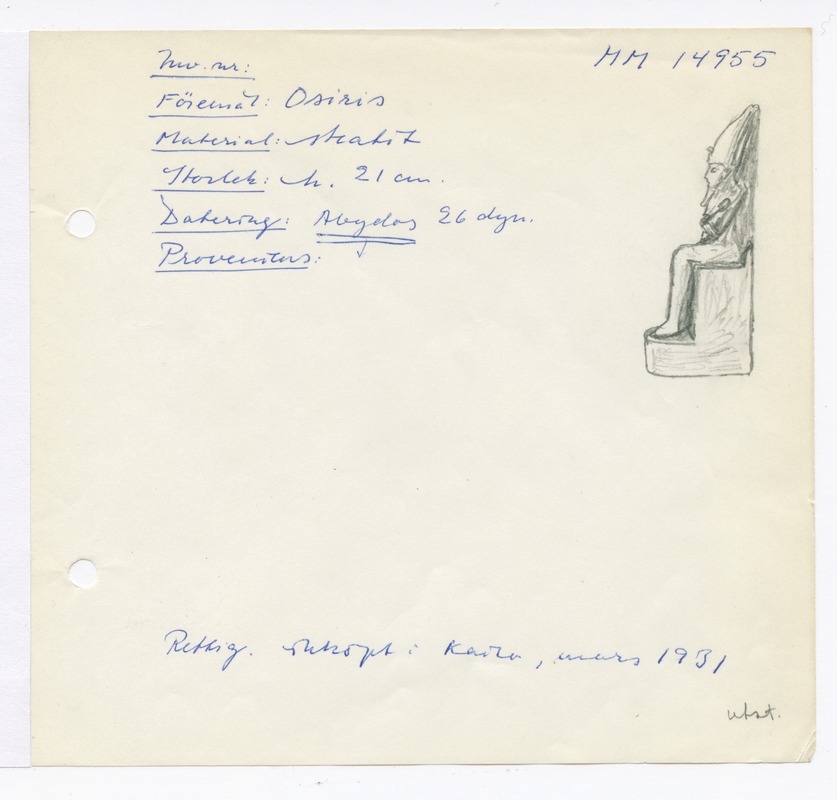 Inv. nr: MM 14955
Föremål: Osiris
Material: steatit
Storlek: h. 21 cm.
Datering: Abydos 26 dyn.
Proveniens:
Rettig. inköpt i Kairo, mars 1931
utst.